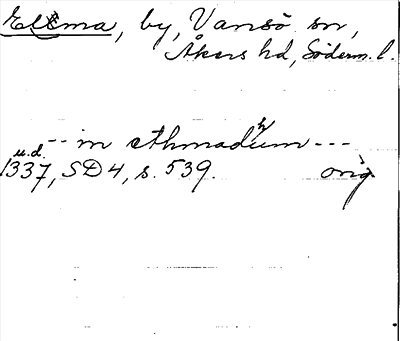 Elsma, by, Vansö sn,
Åkers hd, Söderm. l.
-- in ethmadhum ---
u.d.
1337, SD 4, s. 539. orig